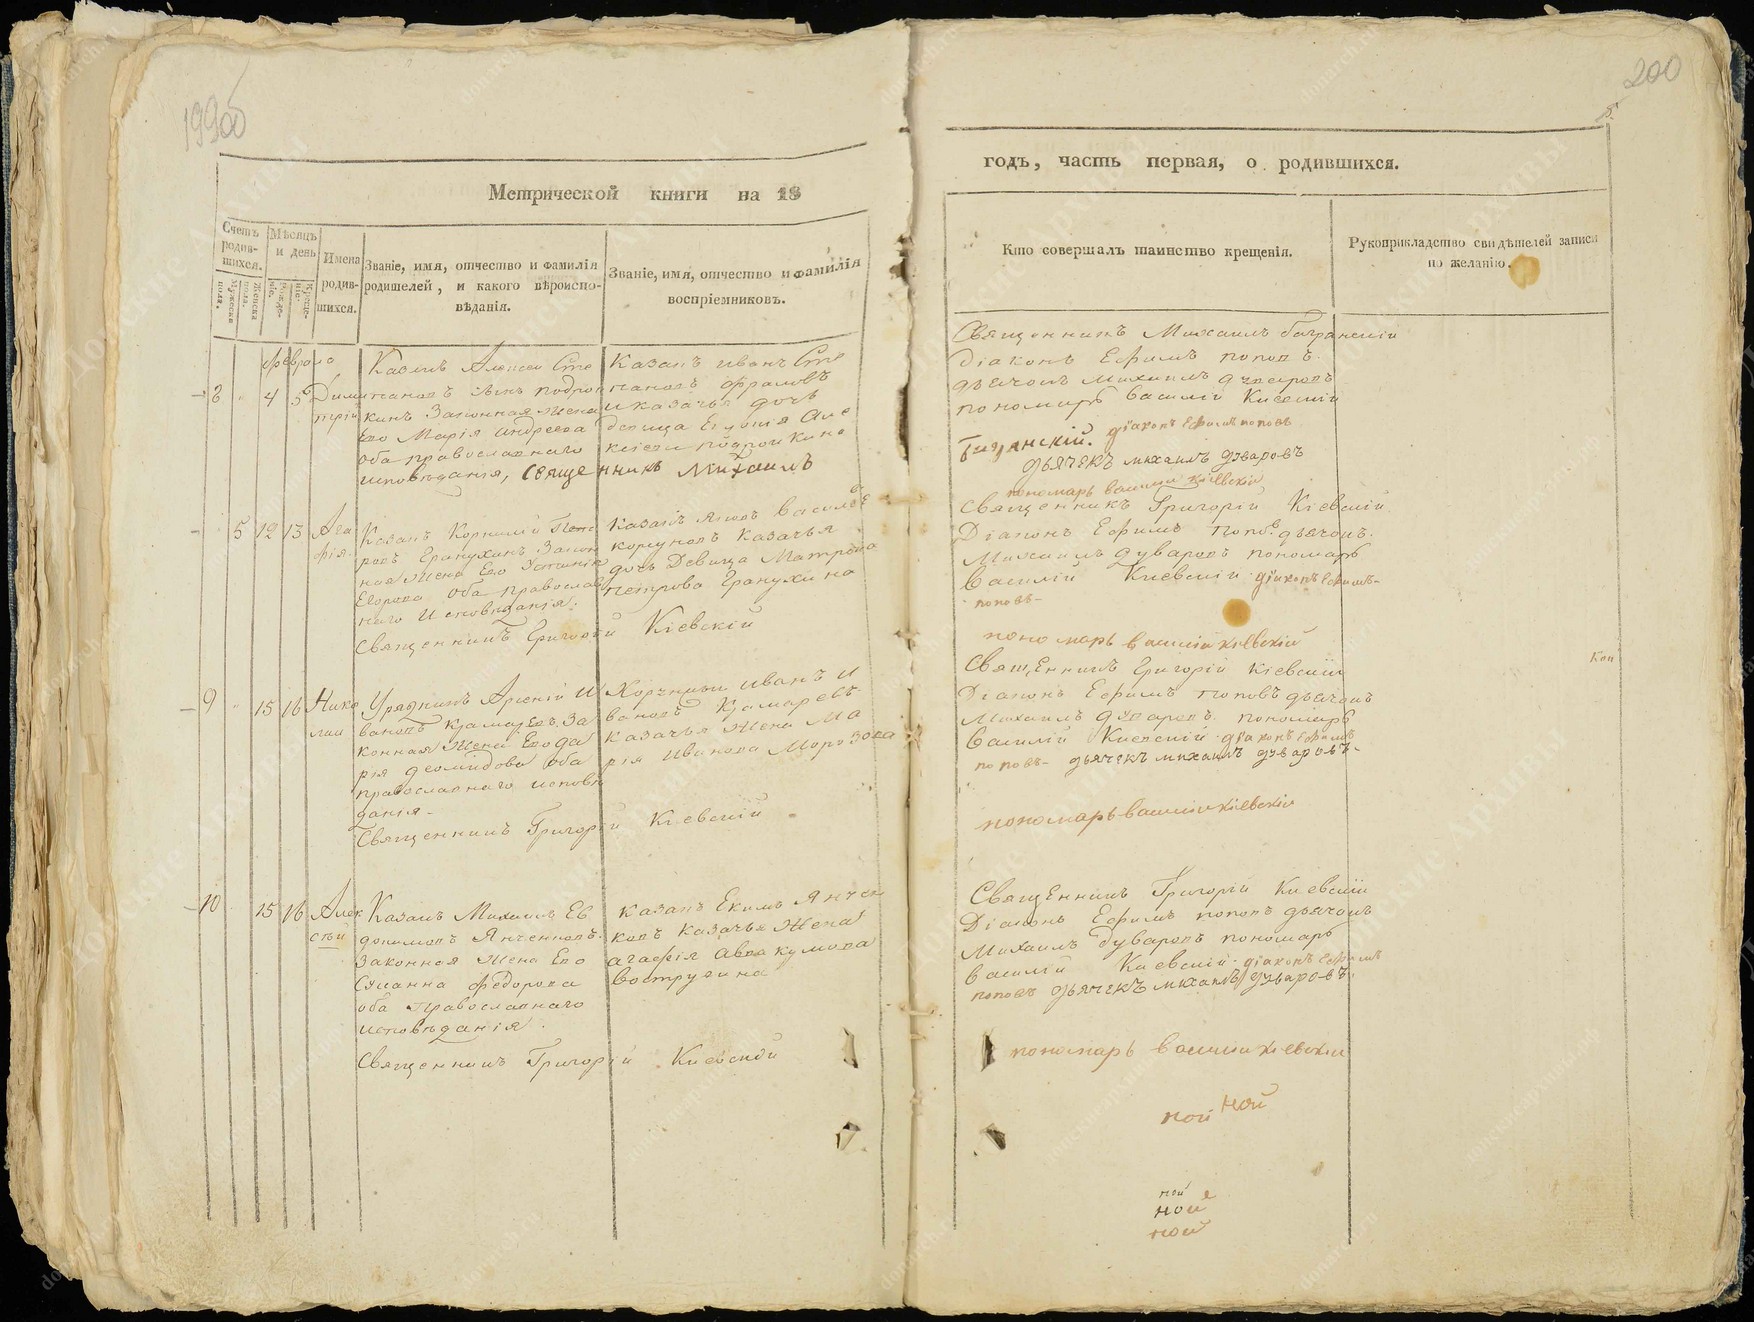 199об
200
Метрической книги на 18
годъ, часть первая, о родившихся.
Счетъ родившихся.
Мужеска пола.
Женска пола.
Мѣсяцъ и день
Рожденіе.
Крещеніе.
Имена родившихся.
Званіе, имя, отчество и фамилія родителей, и какого вѣроисповѣданія.
Званіе, имя, отчество и фамилія воспріемниковъ.
Кто совершалъ таинство крещенія.
Рукоприкладство свидѣтелей записи по желанію.
февраля
8 4 5 Димитрій
Казакъ Алексей Сте
пановъ сынъ подрой
кинъ Законная жена
Его Марія Андреева
оба православнаго
исповѣданія, священникъ Михаилъ
Казакъ иванъ Сте
пановъ фроловъ
и казачья дочь
девица Але
ксіева подройкина
Священникъ Михаилъ
Діаконъ Ефимъ поповъ.
дьячокъ Михаилъ дуваровъ
пономарь василій Кіевскій
діаконъ Ефимъ поповъ
дьячекъ михаилъ дуваровъ
пономарь василій кіевскій
5 12 13 Агафія
Казакъ Корнилій Пет
ровъ Гранухинъ Закон
ная жена Его
Егорова оба православ
наго Исповѣданія:
Священникъ Григорій Кіевскій
Казакъ Яковъ василье
въ
коршуновъ Казачья
дочь Девица Матрона
петрова Гранухина
Священникъ Григорій Кіевскій
Діаконъ Ефимъ Попо. дьячокъ.
Михаилъ дуваровъ пономарь
Василій Киевскій діаконъ Ефимъ
поповъ
пономарь василій кіевскій
9 15 16 Николаи
Урядникъ Арсеній И
вановъ Крамаревъ За
конная жена Его Да
рія Деомидова оба
православнаго исповѣ
данія.
Священникъ Григорій Кіевскій
Хорунжи иванъ И
вановъ Крамаревъ
Казачья жена Ма
рія Иванова Морозова
Священникъ Григорій Кіевскій
Діаконъ Ефимъ Поповъ дьячокъ
Михаилъ дуваровъ пономарь
василій Киевскій діаконъ Ефимъ
поповъ дьячекъ михаилъ дуваровъ
пономарь василій кіевскій
Коп
10 15 16 Алексѣй
Казакъ Михаилъ Ев
докимовъ Янченковъ.
Законная жена Его
Сусанна Федорова
оба Православнаго
исповѣданія.
Священникъ Григорій Киевскій
казакъ Екимъ Янчен
ковъ казачья жена
агафія Аввакумова
вострикина
Священникъ Григорій Киевскій
Діаконъ Ефимъ поповъ дьячокъ
Михаилъ дуваровъ пономарь
василій Киевскій діаконъ Ефимъ
поповъ дьячекъ михаилъ дуваровъ
пономарь василій кіевскій
ной ной
ной
ной
ной